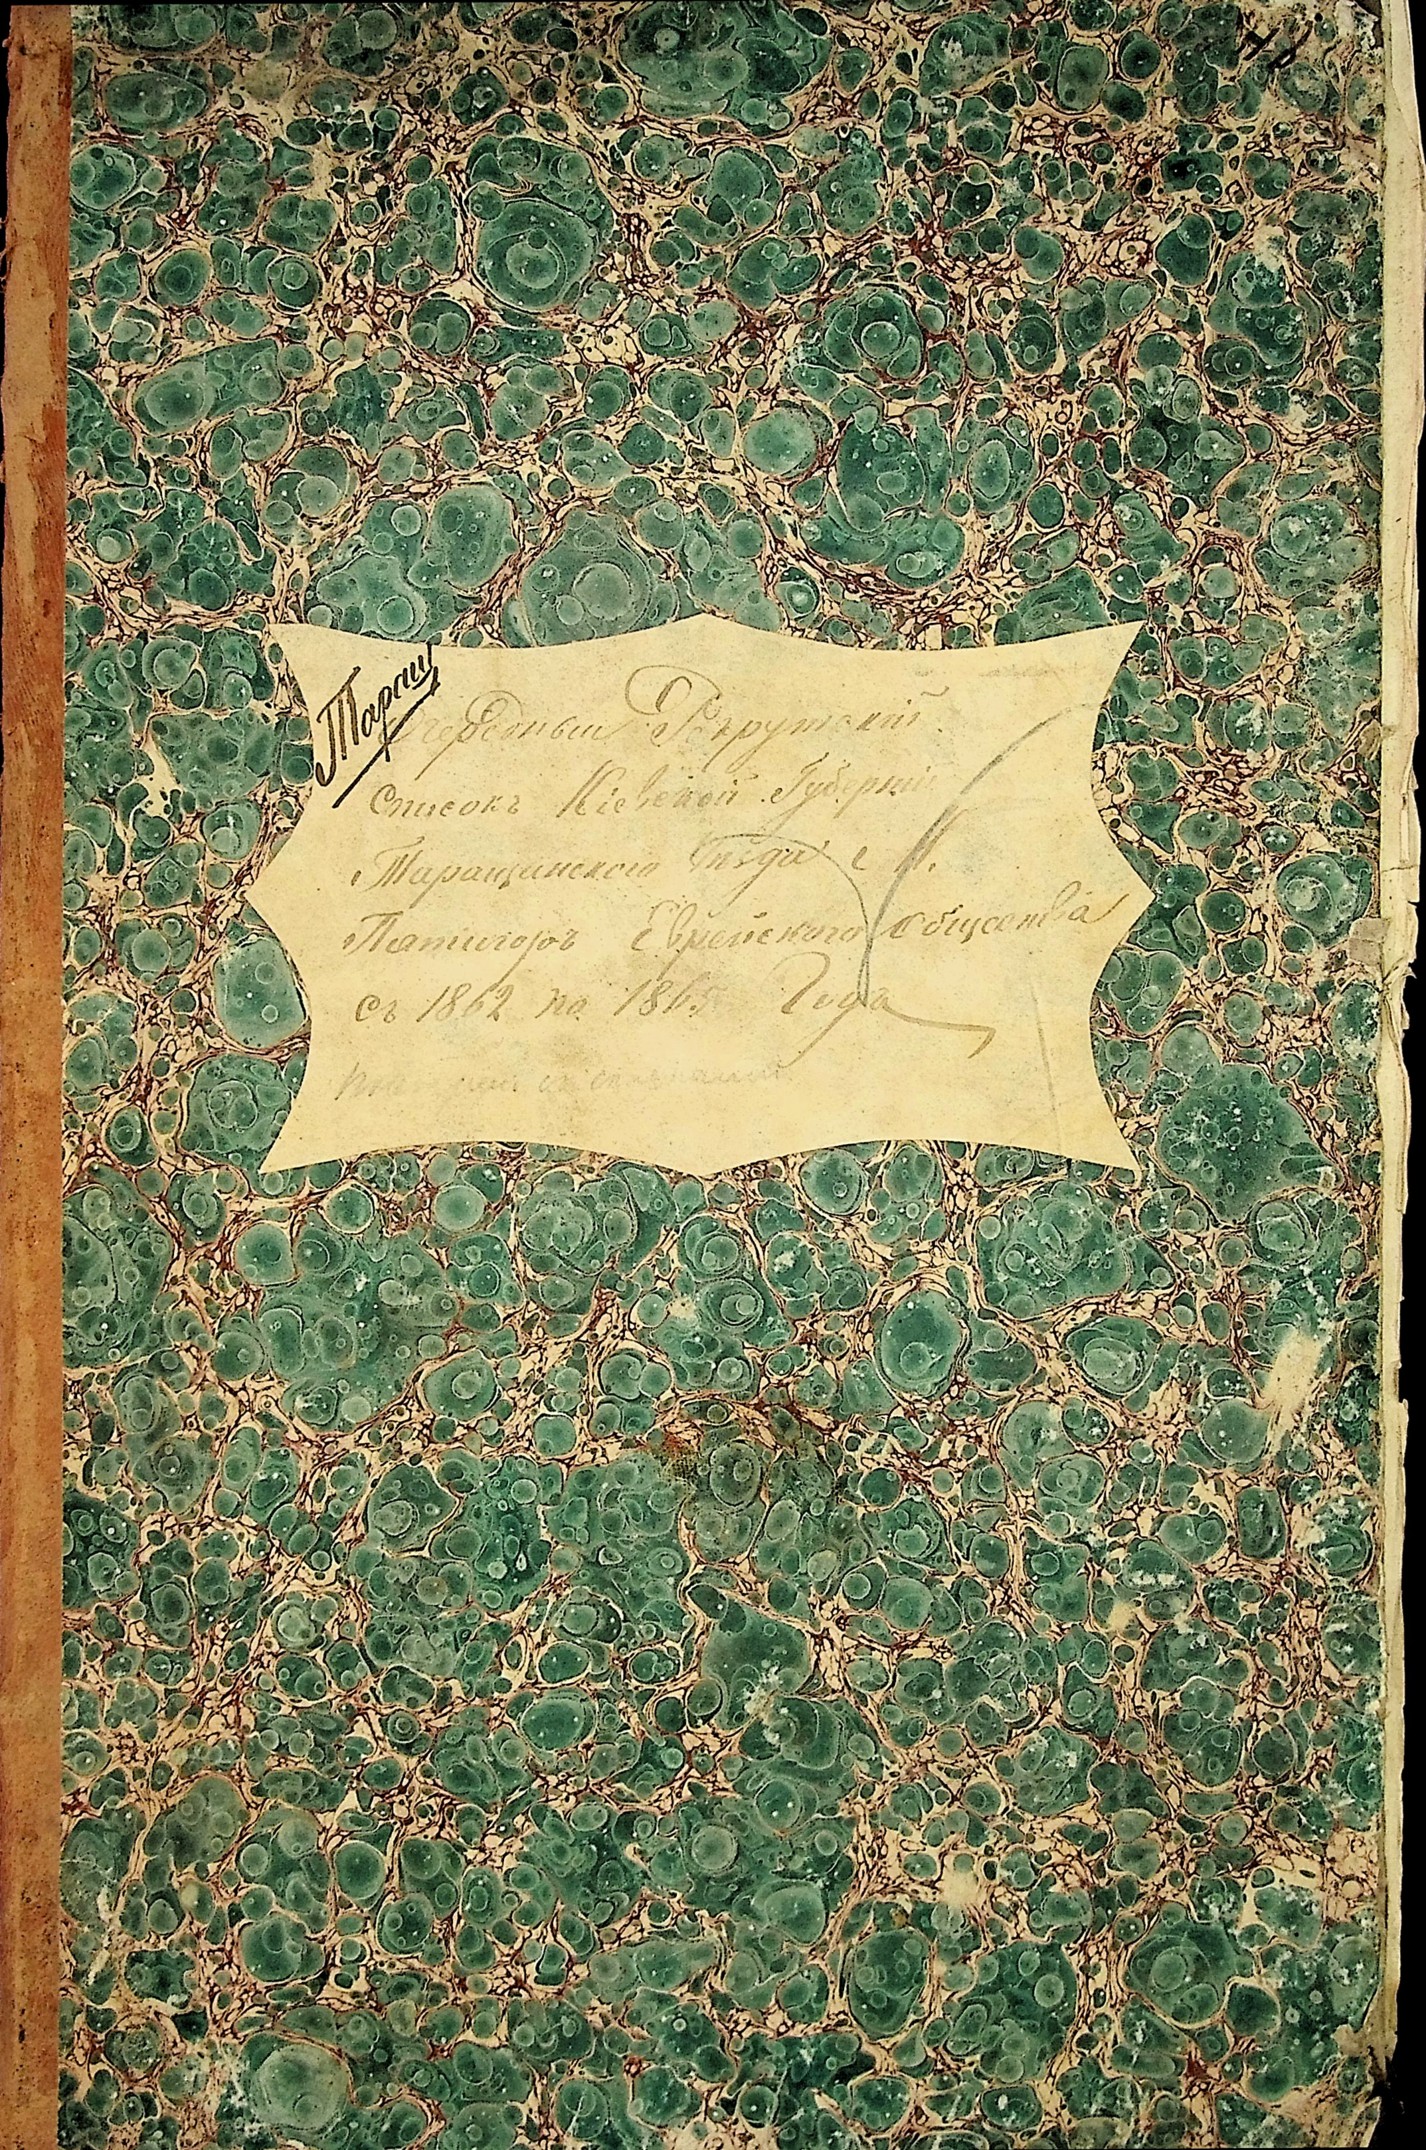 Тараш
Очередный Рекрутский
списокъ Кіевской Губерніи
Таращанского Уезда С М.
Пятигоръ Еврейского общества
съ 1862 по 1865 Года